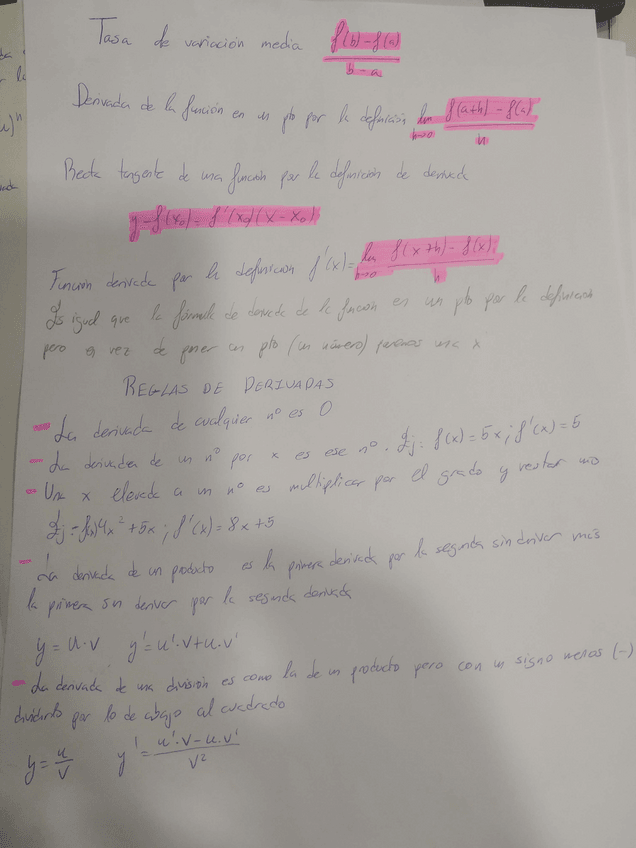 Tasa de variación media f(b) - f(a) / b - a
Derivada de la función en un pto por la definición lim h→0 f(a+h) - f(a) / h
Recta tangente de una función por la definición de derivada
y - f(x₀) = f'(x₀)(x - x₀)
Función derivada por la definición f'(x) = lim h→0 f(x+h) - f(x) / h
Es igual que la fórmula de derivada de la función en un pto por la definición
pero en vez de poner un pto (un número) ponemos una x
REGLAS DE DERIVADAS
- La derivada de cualquier nº es 0
- La derivada de un nº por x es ese nº. Ej: f(x) = 5x ; f'(x) = 5
- Una x elevada a un nº es multiplicar por el grado y restar uno
Ej = f(x) 4x² + 5x ; f'(x) = 8x + 5
- La derivada de un producto es la primera derivada por la segunda sin derivar más
la primera sin derivar por la segunda derivada
y = u·v y' = u'·v + u·v'
- La derivada de una división es como la de un producto pero con un signo menos (-)
dividirlo por lo de abajo al cuadrado
y = u/v y' = u'·v - u·v' / v²